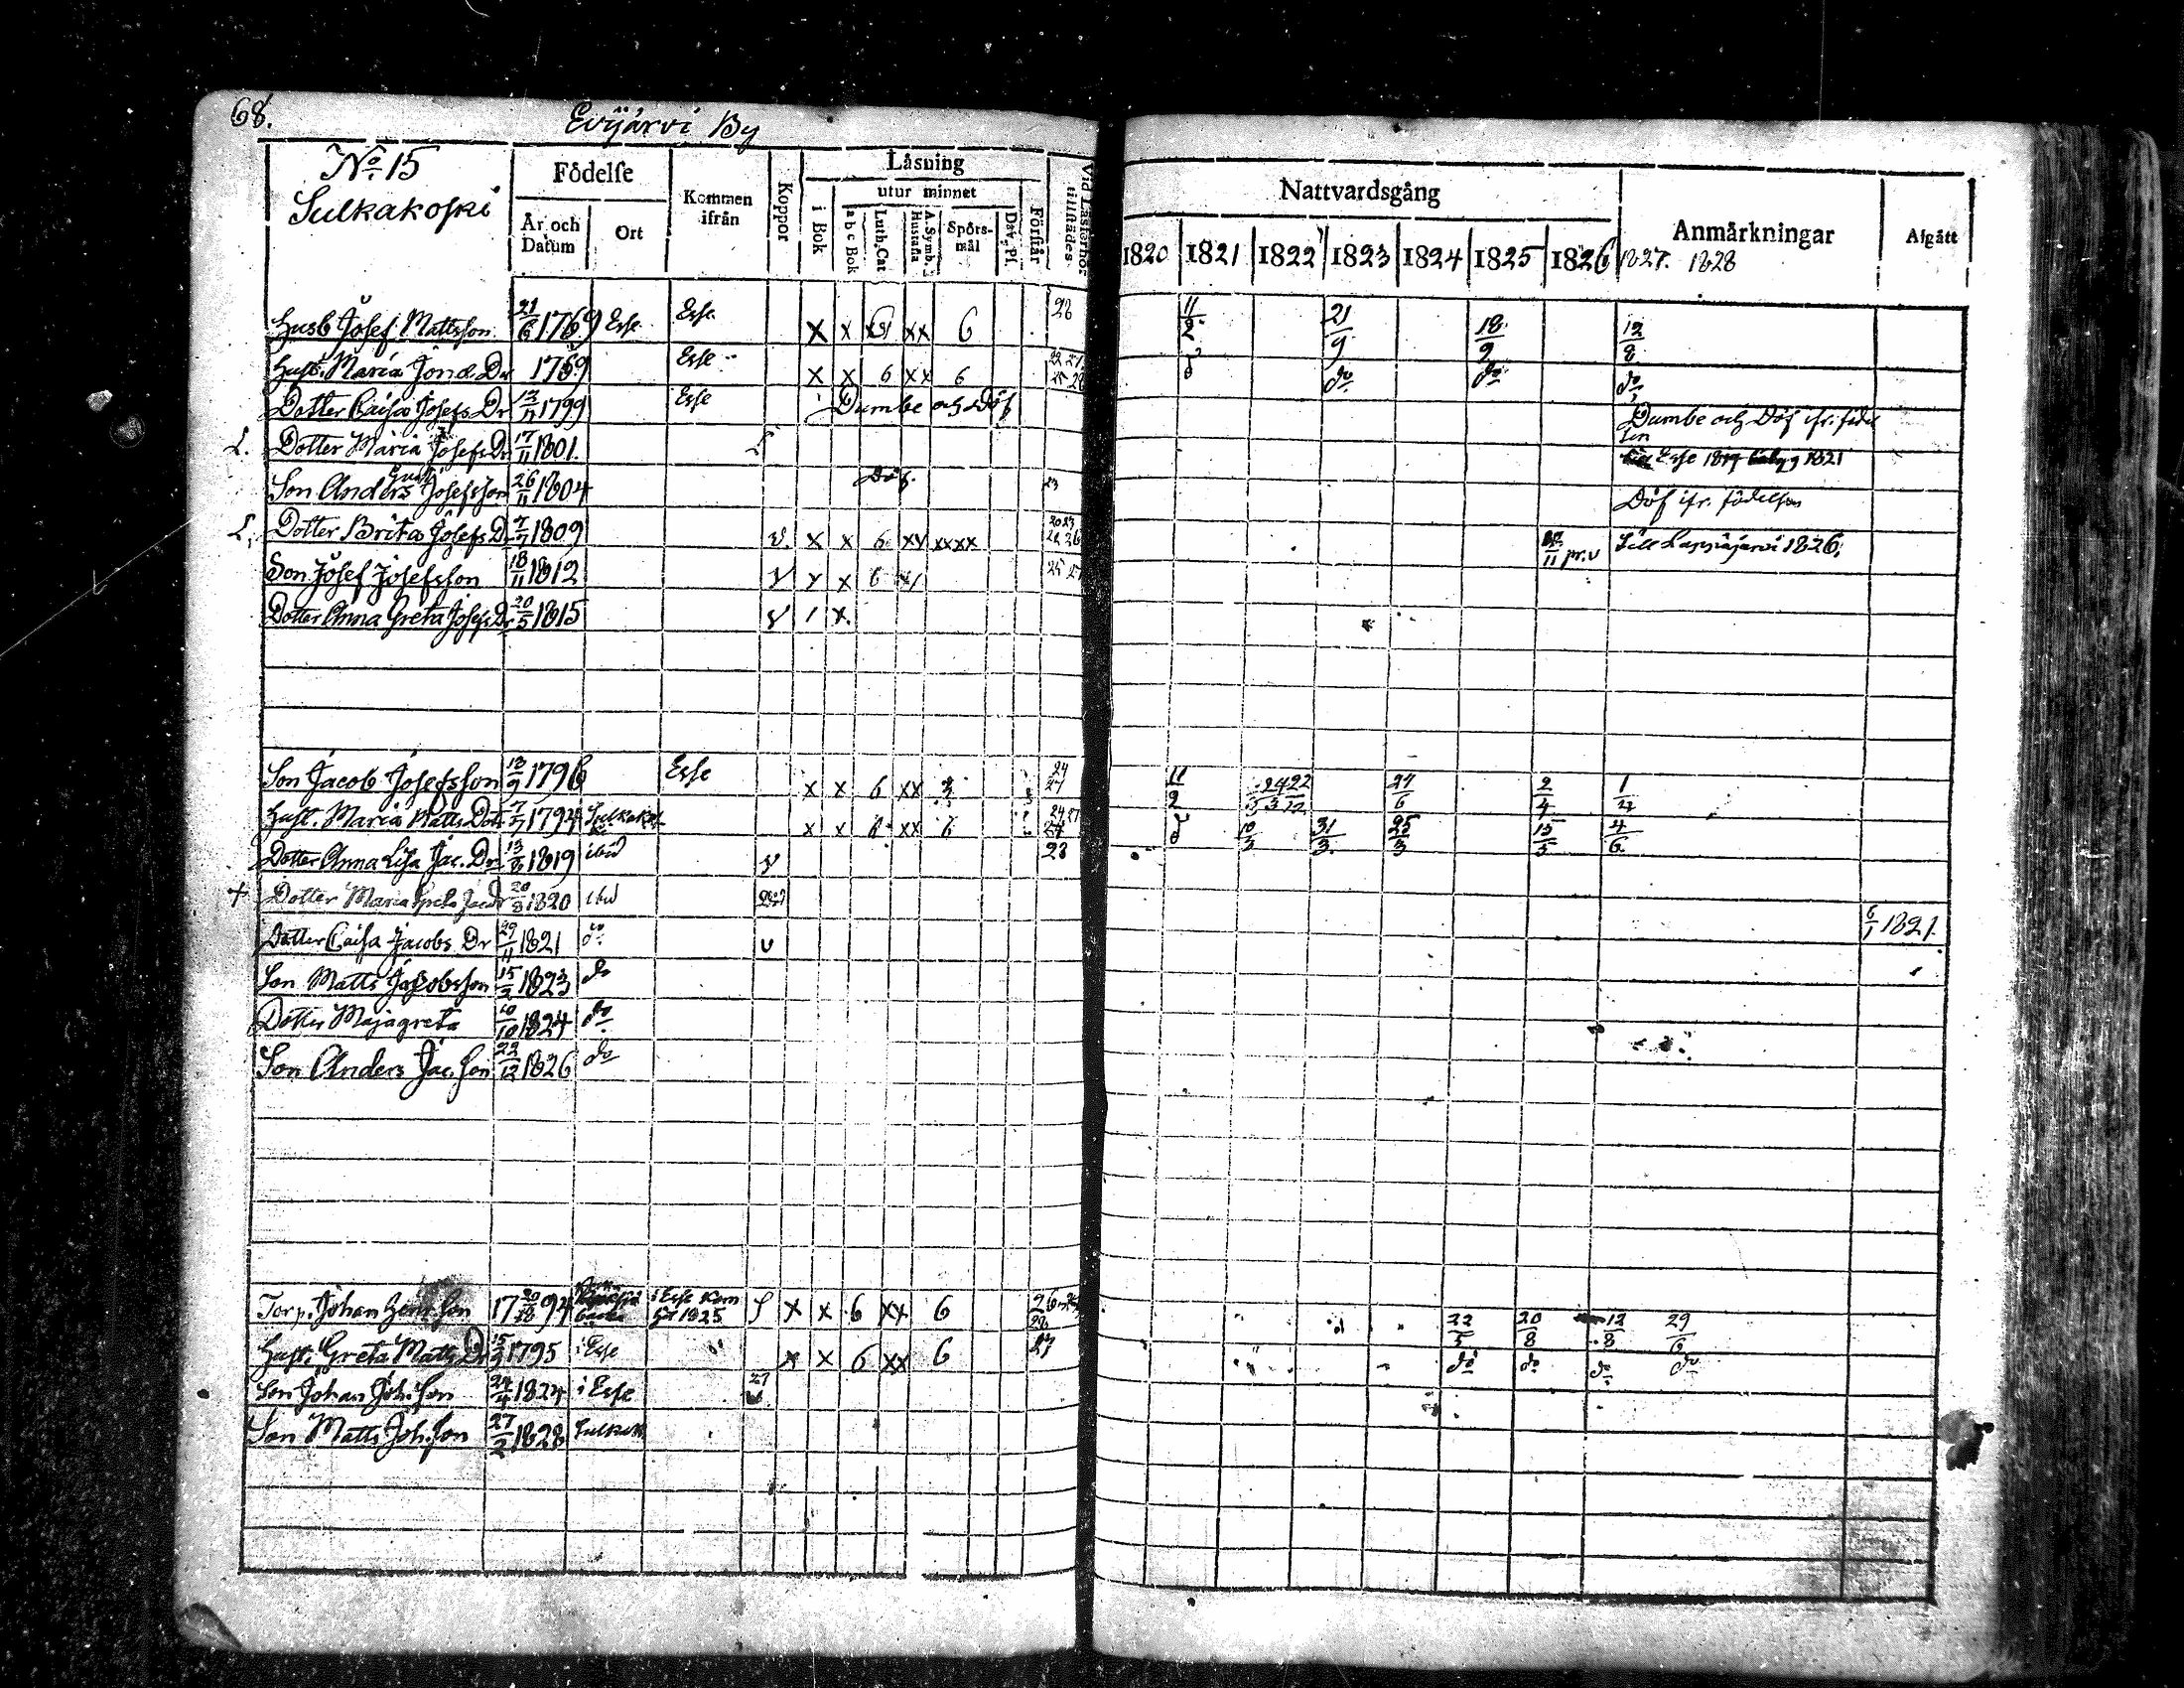 68.
Evijärvi By
No 15
Sulkakoski
Födelse
År och Datum
Ort
Kommen ifrån
Koppor
Läsning
utur minnet
i Bok
a b c Bok
Luth. Cat
A. Symb. Hustafla
Spörsmål
Dav. Ps.
Förstår
Vid Läsförhör tillstädes
Nattvardsgång
1820 1821 1822 1823 1824 1825 1826
Anmärkningar
1827. 1828
Afgått
Husb Josef Mattsson 21/6 1769 Esse Esse x x xx 6 28 11/2 21/9 18/9 12/8
Hust. Maria Jons Dr 1759 Esse x x 6 xx 6 do do do do
Dotter Caisa Josefs Dr 12/11 1799 Esse Dumbe och Döf Dumbe och Döf ifr. födelsen
L. Dotter Maria Josefs Dr 17/11 1801. Esse 1821
Son Anders Josefsson 26/11 1804 Döf. 23 Döf ifr. födelsen
L. Dotter Brita Josefs D. 7/7 1809 v. x x 6 xv xxxx 11 pr. v Till Lappajärvi 1826.
Son Josef Josefsson 18/11 1812 v v x 6 25 27
Dotter Anna Greta Josefs Dr 20/5 1815 v 1 x.
Son Jacob Josefsson 13/9 1796 Esse x x 6 xx 3 24 27 11/2 24/3 22/12 24/6 2/4 1/4
Hust. Maria Matts Dotr 7/7 1794 Sulkakoski x x 6 xx 6 24 27 do 10/3 31/3 25/3 15/5 4/6
Dotter Anna Lisa Jac. Dr 13/8 1819 ibid v 28
+ Dotter Maria Greta Jac Dr 20/8 1820 ibid 6/1 1821.
Dotter Caisa Jacobs Dr 29/11 1821 do v
Son Matts Jacobsson 15/2 1823 do
Dotter Majagreta 10/10 1824 do
Son Anders Jac. Son 22/12 1826 do
Torp. Johan Henr. Son 17 20/10 94 i Esse Kom hit 1825 x x 6 xx 6 26 28 22/5 20/8 12/8 29/6
Hust. Greta Matts Dr 15/9 1795 i Esse " x x 6 xx 6 27 do do do do
Son Johan Joh. Son 24/4 1824 i Esse 27 v
Son Matts Joh. Son 27/2 1828